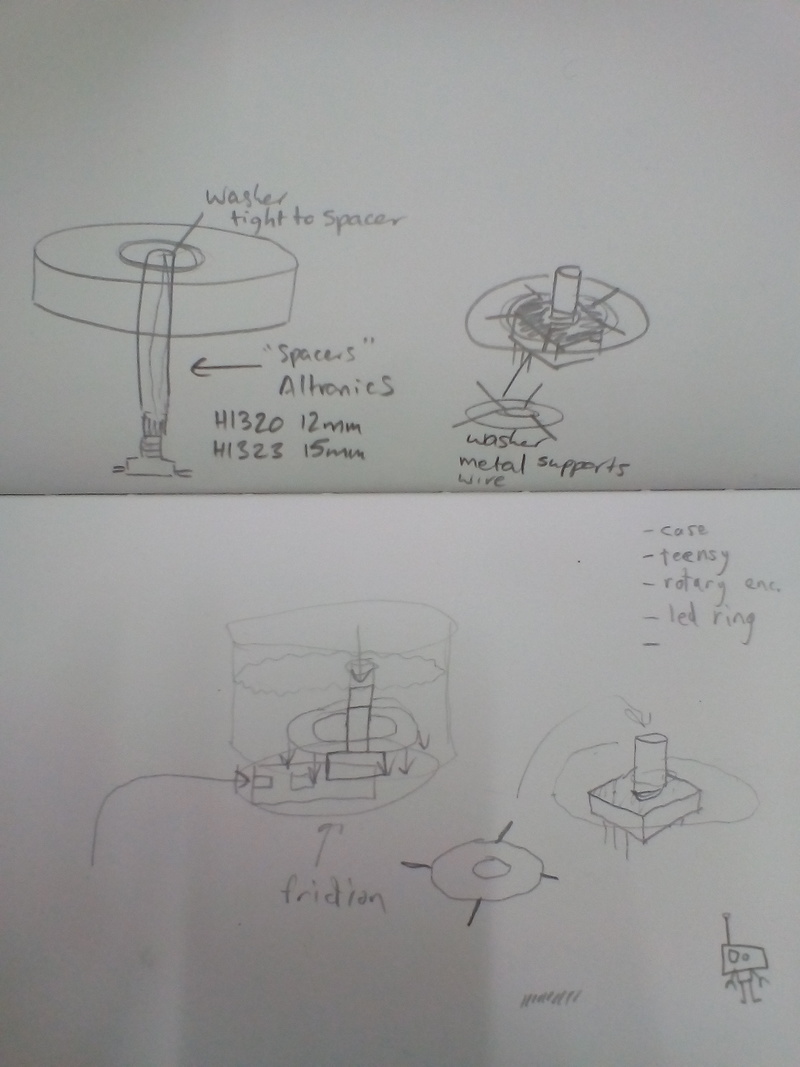 washer
tight to spacer
"Spacers"
Altronics
H1320 12mm
H1323 15mm
washer
metal supports
wire
- case
- teensy
- rotary enc.
- led ring
-
friction